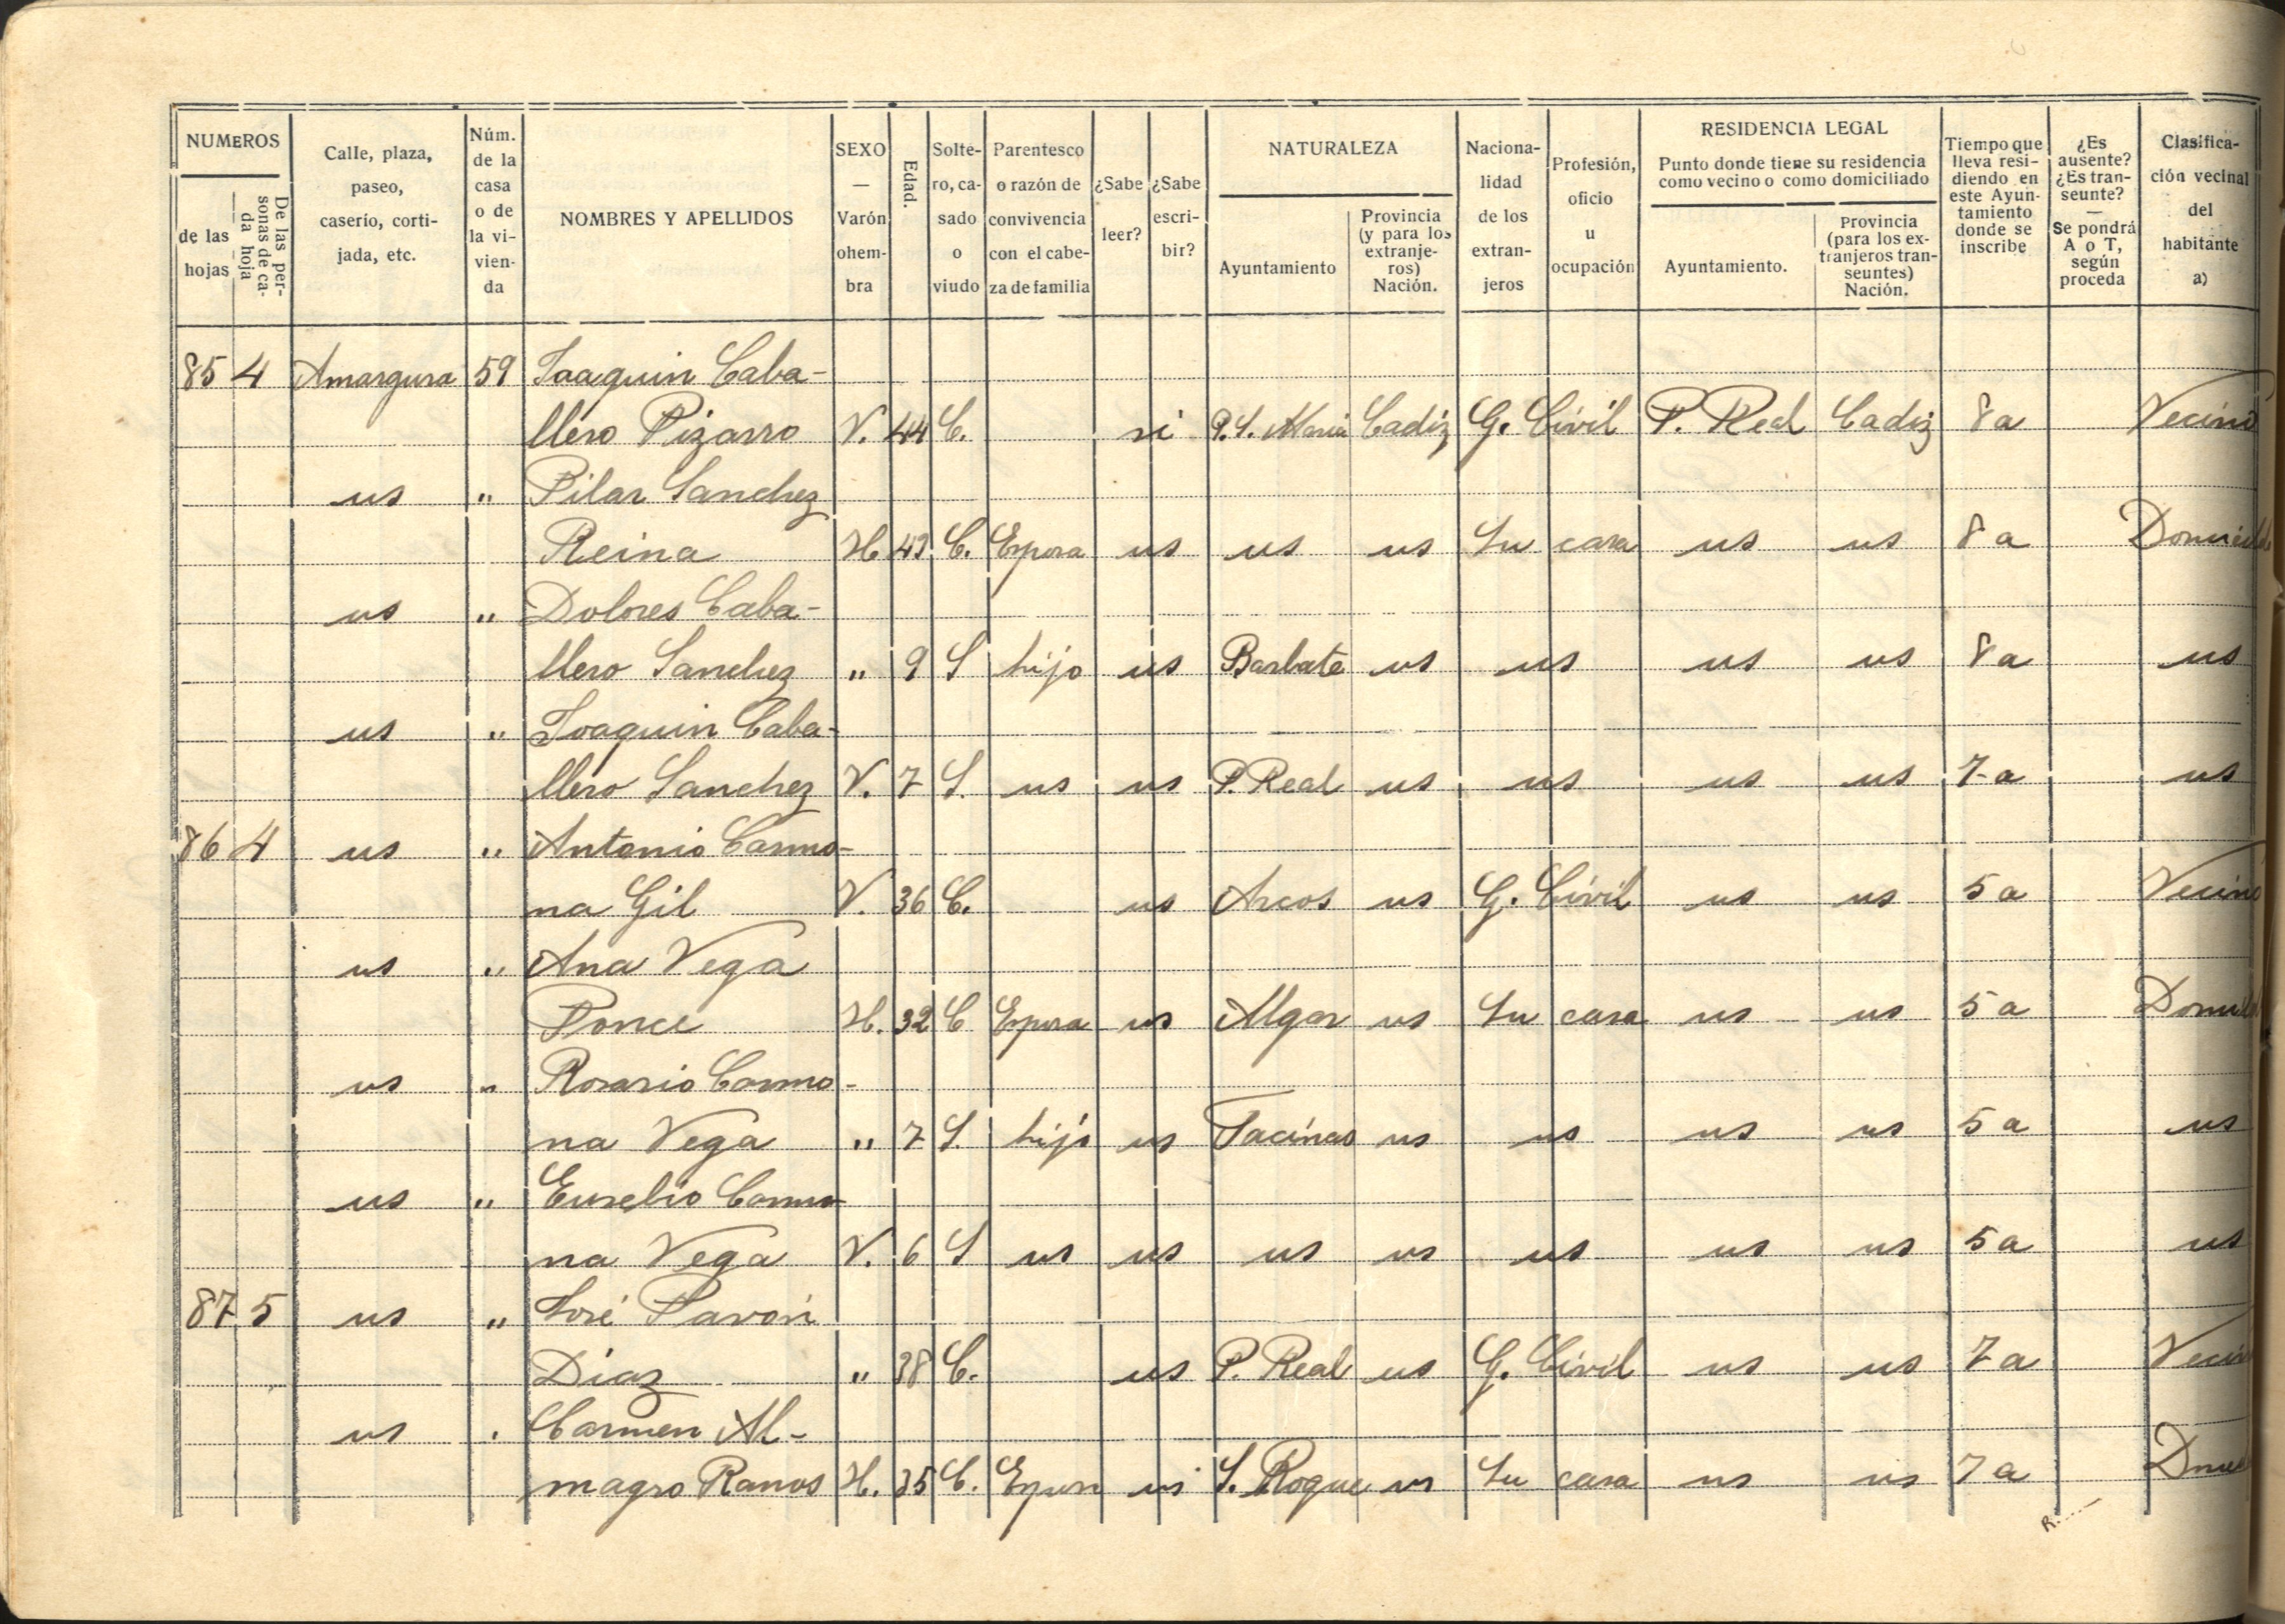 NUMEROS
de las hojas
De las personas de cada hoja
Calle, plaza, paseo, caserío, cortijada, etc.
Núm. de la casa o de la vivienda
NOMBRES Y APELLIDOS
SEXO — Varón ohembra
Edad.
Soltero, casado o viudo
Parentesco o razón de convivencia con el cabeza de familia
¿Sabe leer?
¿Sabe escribir?
NATURALEZA
Ayuntamiento
Provincia (y para los extranjeros) Nación.
Nacionalidad de los extranjeros
Profesión, oficio u ocupación
RESIDENCIA LEGAL
Punto donde tiene su residencia como vecino o como domiciliado
Ayuntamiento.
Provincia (para los extranjeros transeuntes) Nación.
Tiempo que lleva residiendo en este Ayuntamiento donde se inscribe
¿Es ausente? ¿Es transeunte? — Se pondrá A o T, según proceda
Clasificación vecinal del habitante a)
85 4 Amargura 59 Joaquin Caba-
llero Pizarro V. 44 C. si P. S. Maria Cadiz G. Civil P. Real Cadiz 8 a Vecino
us " Pilar Sanchez
Reina H. C. Esposa us us us Su casa us us 8 a
us " Dolores Caba-
llero Sanchez " 9 S hijo us Barbate us us us us 8 a us
us " Joaquin Caba-
llero Sanchez V. 7 S. us us P. Real us us us us 7 a us
86 4 us " Antonio Carmo-
na Gil V. 36 C. us Arcos us G. Civil us us 5 a Vecino
us " Ana Vega
Ponce H. 32 C Esposa us Algar us Su casa us us 5 a
us " Rosario Carmo-
na Vega " 7 S. hijo us us us us us 5 a us
us " Eusebio Carmo-
na Vega V. 6 S us us us us us us us 5 a us
87 5 us " José Pavón
Diaz " 38 C. us P. Real us G. Civil us us 7 a
us " Carmen Al-
magro Ramos H. 35 C. us S. Roque us Su casa us us 7 a